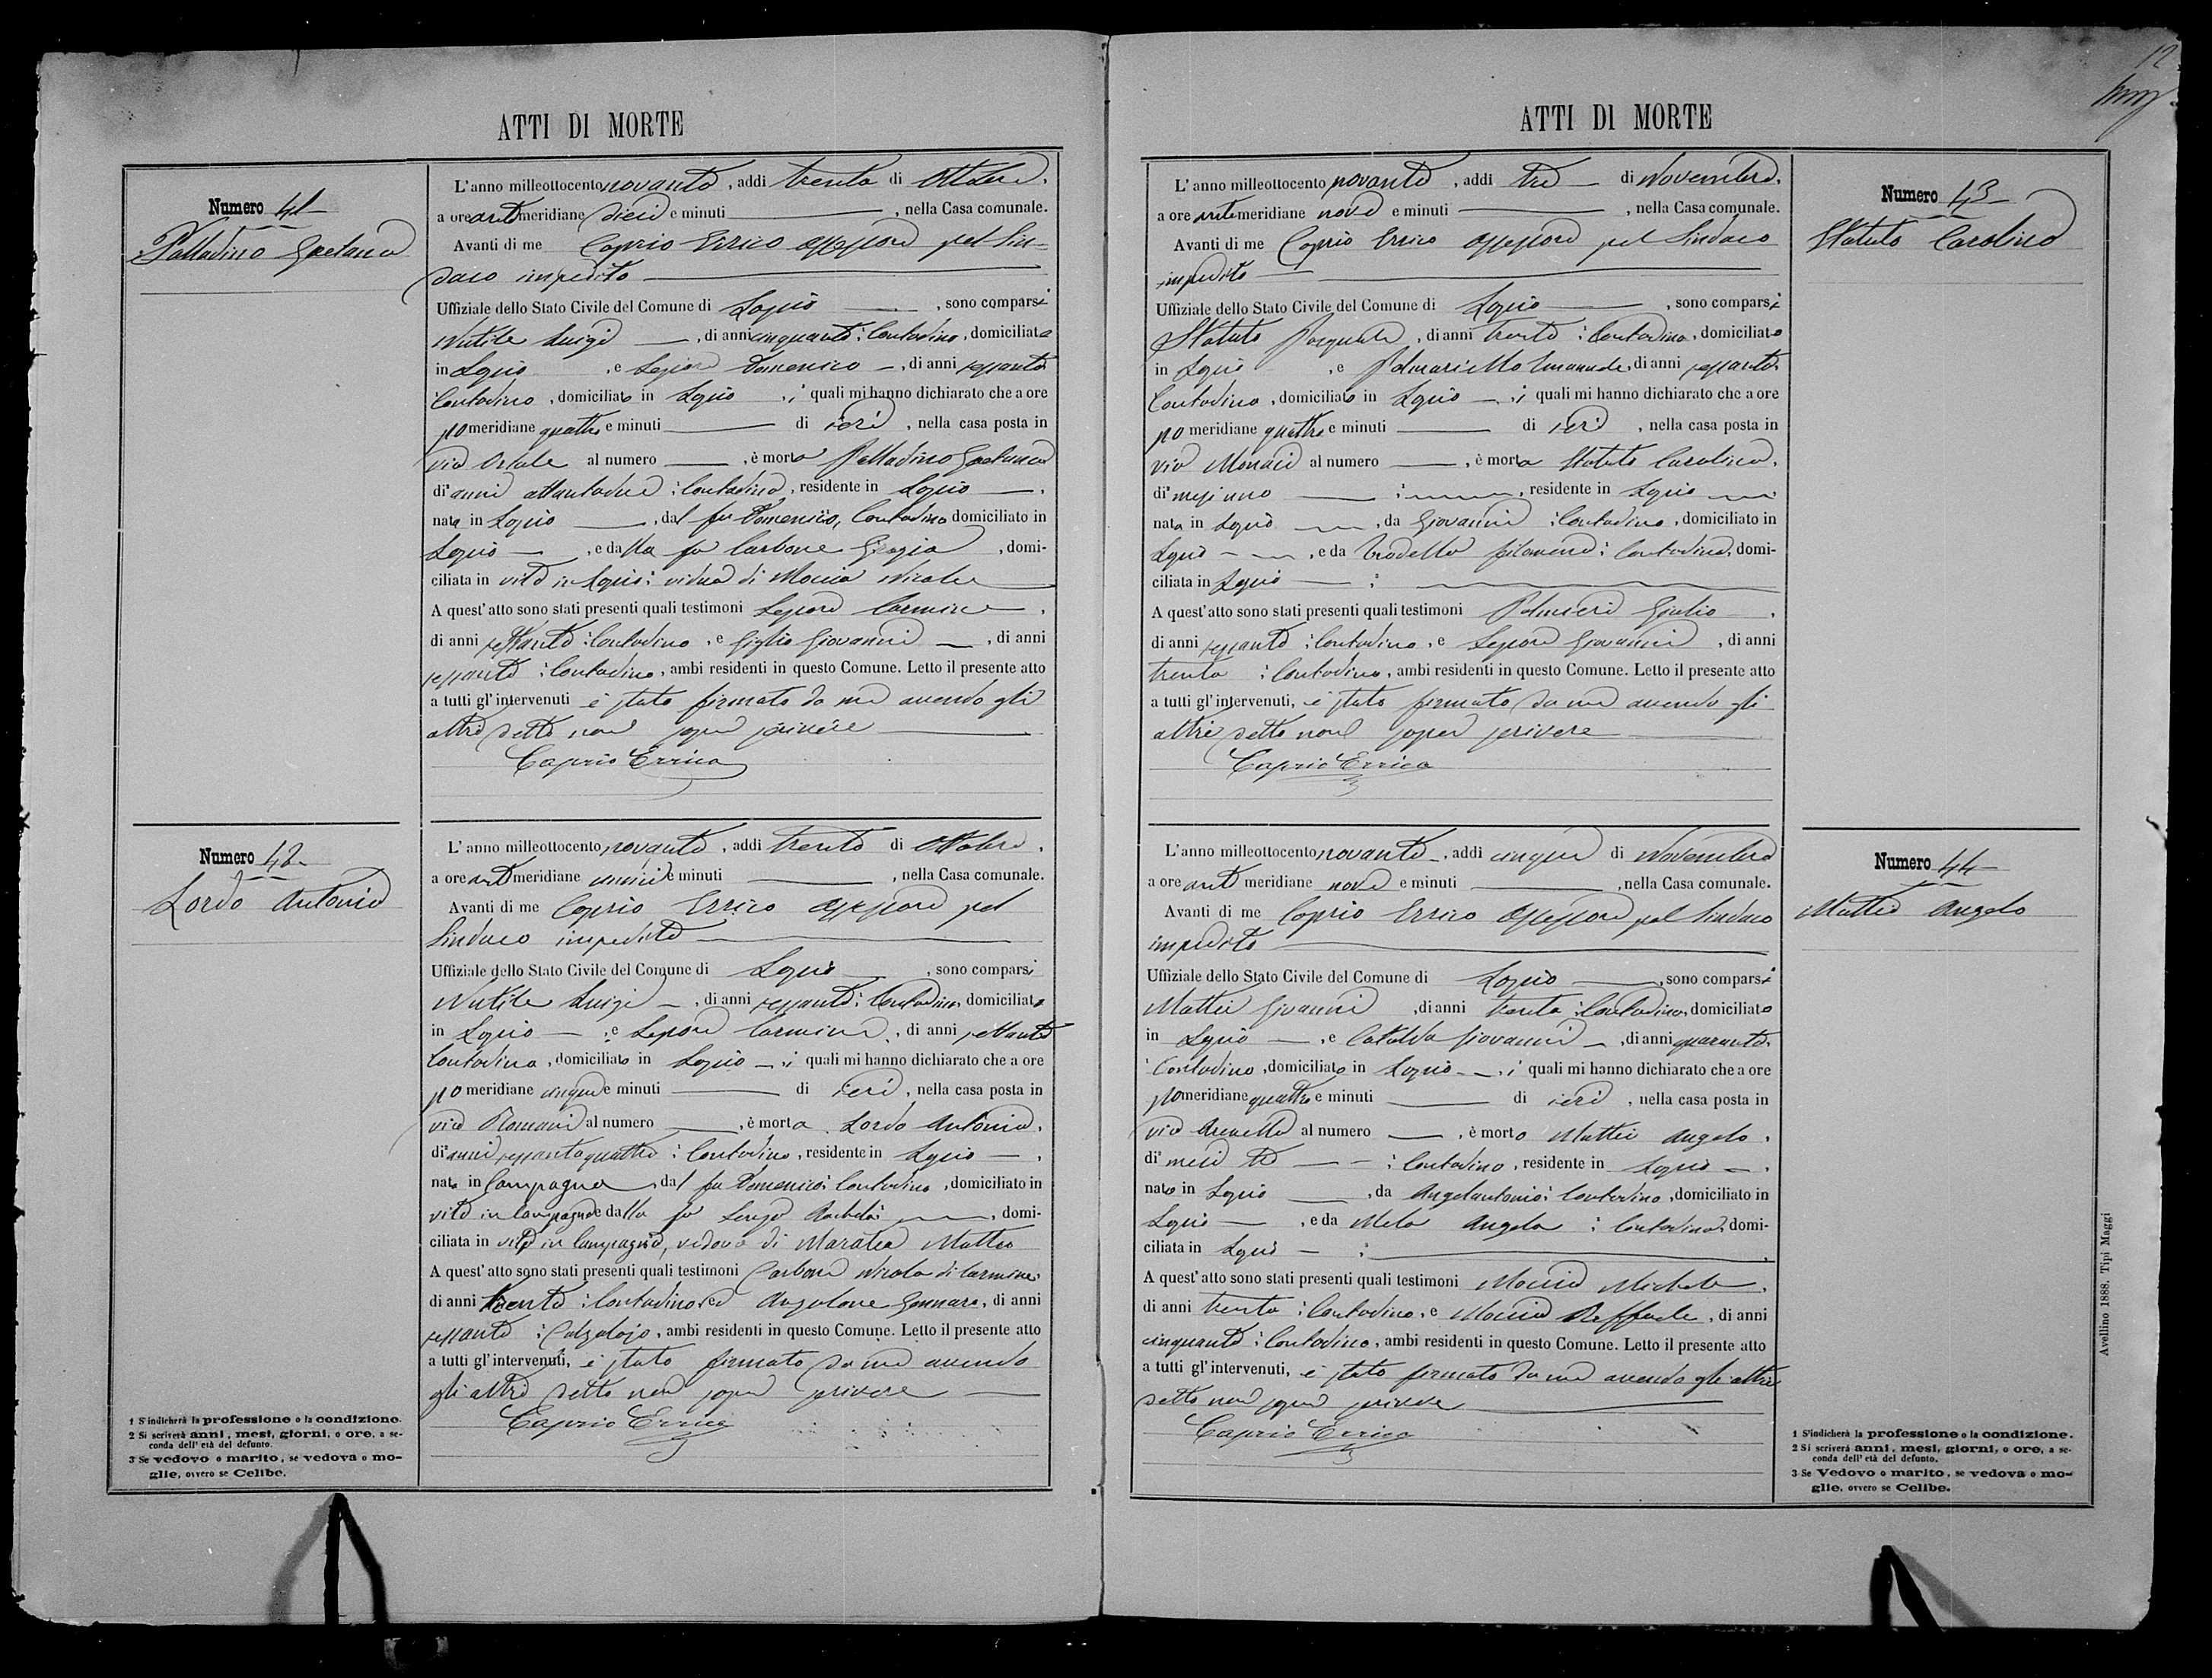 ATTI DI MORTE
Numero 41
Palladino Gaetana
L'anno milleottocento novanta, addi trenta di Ottobre,
a ore antimeridiane dieci e minuti, nella Casa comunale.
Avanti di me Caprio Errico Assessore pel Sin-
daco impedito
Uffiziale dello Stato Civile del Comune di Lapio, sono comparsi
Nutile Luigi, di anni cinquanta; Contadino, domiciliato
in Lapio, e Lepore Domenico, di anni sessanta
Contadino, domiciliato in Lapio, i quali mi hanno dichiarato che a ore
pomeridiane quattro e minuti di ieri, nella casa posta in
via al numero, è morta Palladino Gaetana
di anni ottantadue; Contadina, residente in Lapio,
nata in Lapio, dal fu Domenico, Contadino domiciliato in
Lapio, e dalla fu Carbone Grazia, domi-
ciliata in vita in Lapio; vidua di Moccia Nicola
A quest'atto sono stati presenti quali testimoni Lepore Carmine,
di anni settanta; Contadino, e Giglio Giovanni, di anni
sessanta; Contadino, ambi residenti in questo Comune. Letto il presente atto
a tutti gl'intervenuti è stato firmato da me avendo gli
altri detto non saper scrivere
Caprio Errico
Numero 42
Lordo Antonia
L'anno milleottocento novanta, addi trenta di Ottobre,
a ore antimeridiane undici e minuti, nella Casa comunale.
Avanti di me Caprio Errico Assessore pel
Sindaco impedito
Uffiziale dello Stato Civile del Comune di Lapio, sono comparsi
Nutile Luigi, di anni sessanta; Contadino, domiciliato
in Lapio, e Lepore Carmine, di anni settanta
Contadino, domiciliato in Lapio, i quali mi hanno dichiarato che a ore
pomeridiane cinque e minuti di ieri, nella casa posta in
via Romani al numero, è morta Lordo Antonia,
di anni sessantaquattro; Contadina, residente in Lapio,
nata in Campagna, dal fu Domenico; Contadino, domiciliato in
vita in Campagna e dalla fu, domi-
ciliata in vita in Campagna, vedova di Maratea Matteo
A quest'atto sono stati presenti quali testimoni Carbone Nicola di Carmine,
di anni trenta; Contadino, ed Angelone Gennaro, di anni
sessanta; Calzolajo, ambi residenti in questo Comune. Letto il presente atto
a tutti gl'intervenuti, è stato firmato da me avendo
gli altri detto non saper scrivere
Caprio Errico
1 S'indicherà la professione o la condizione.
2 Si scriverà anni, mesi, giorni, o ore, a se-
conda dell'età del defunto.
3 Se vedovo o marito, se vedova o mo-
glie, ovvero se Celibe.
12
ATTI DI MORTE
L'anno milleottocento novanta, addi tre di Novembre,
a ore antimeridiane nove e minuti, nella Casa comunale.
Avanti di me Caprio Errico Assessore pel Sindaco
impedito
Uffiziale dello Stato Civile del Comune di Lapio, sono comparsi
Statuto Pasquale, di anni trenta; Contadino, domiciliato
in Lapio, e Palmariello Emanuele, di anni sessanta
Contadino, domiciliato in Lapio, i quali mi hanno dichiarato che a ore
pomeridiane quattro e minuti di ieri, nella casa posta in
via Monaci al numero, è morta Statuto Carolina,
di mesi uno; residente in Lapio
nata in Lapio, da Giovanni; Contadino, domiciliato in
Lapio, e da Filomena; Contadina, domi-
ciliata in Lapio;
A quest'atto sono stati presenti quali testimoni Palmieri Giulio,
di anni sessanta; Contadino, e Lepore Giovanni, di anni
trenta; Contadino, ambi residenti in questo Comune. Letto il presente atto
a tutti gl'intervenuti, è stato firmato da me avendo gli
altri detto non saper scrivere
Caprio Errico
Numero 43
Statuto Carolina
L'anno milleottocento novanta, addi cinque di Novembre
a ore antimeridiane nove e minuti, nella Casa comunale.
Avanti di me Caprio Errico Assessore pel Sindaco
impedito
Uffiziale dello Stato Civile del Comune di Lapio, sono comparsi
Mattei Giovanni, di anni trenta; Contadino, domiciliato
in Lapio, e Cataldo Giovanni, di anni quaranta,
Contadino, domiciliato in Lapio, i quali mi hanno dichiarato che a ore
pomeridiane quattro e minuti di ieri, nella casa posta in
via Arenella al numero, è morto Mattei Angelo,
di mesi tre; Contadino, residente in Lapio,
nato in Lapio, da Angelantonio; Contadino, domiciliato in
Lapio, e da Mele Angela; Contadina, domi-
ciliata in Lapio;
A quest'atto sono stati presenti quali testimoni Moccia Michele,
di anni trenta; Contadino, e Moccia Raffaele, di anni
cinquanta; Contadino, ambi residenti in questo Comune. Letto il presente atto
a tutti gl'intervenuti, è stato firmato da me avendo gli altri
detto non saper scrivere
Caprio Errico
Numero 44
Mattei Angelo
1 S'indicherà la professione o la condizione.
2 Si scriverà anni, mesi, giorni, o ore, a se-
conda dell'età del defunto.
3 Se Vedovo o marito, se vedova o mo-
glie, ovvero se Celibe.
Avellino 1888. Tipi Maggi